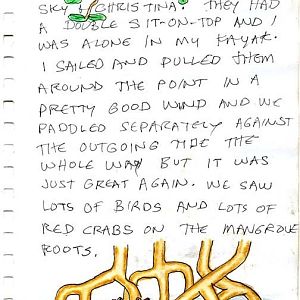 SKY & CHRISTINA. THEY HAD
A DOUBLE SIT-ON-TOP AND I
WAS ALONE IN MY KAYAK.
I SAILED AND PULLED THEM
AROUND THE POINT IN A
PRETTY GOOD WIND AND WE
PADDLED SEPARATELY AGAINST
THE OUTGOING TIDE THE
WHOLE WAY BUT IT WAS
JUST GREAT AGAIN. WE SAW
LOTS OF BIRDS AND LOTS OF
RED CRABS ON THE MANGROVE
ROOTS.